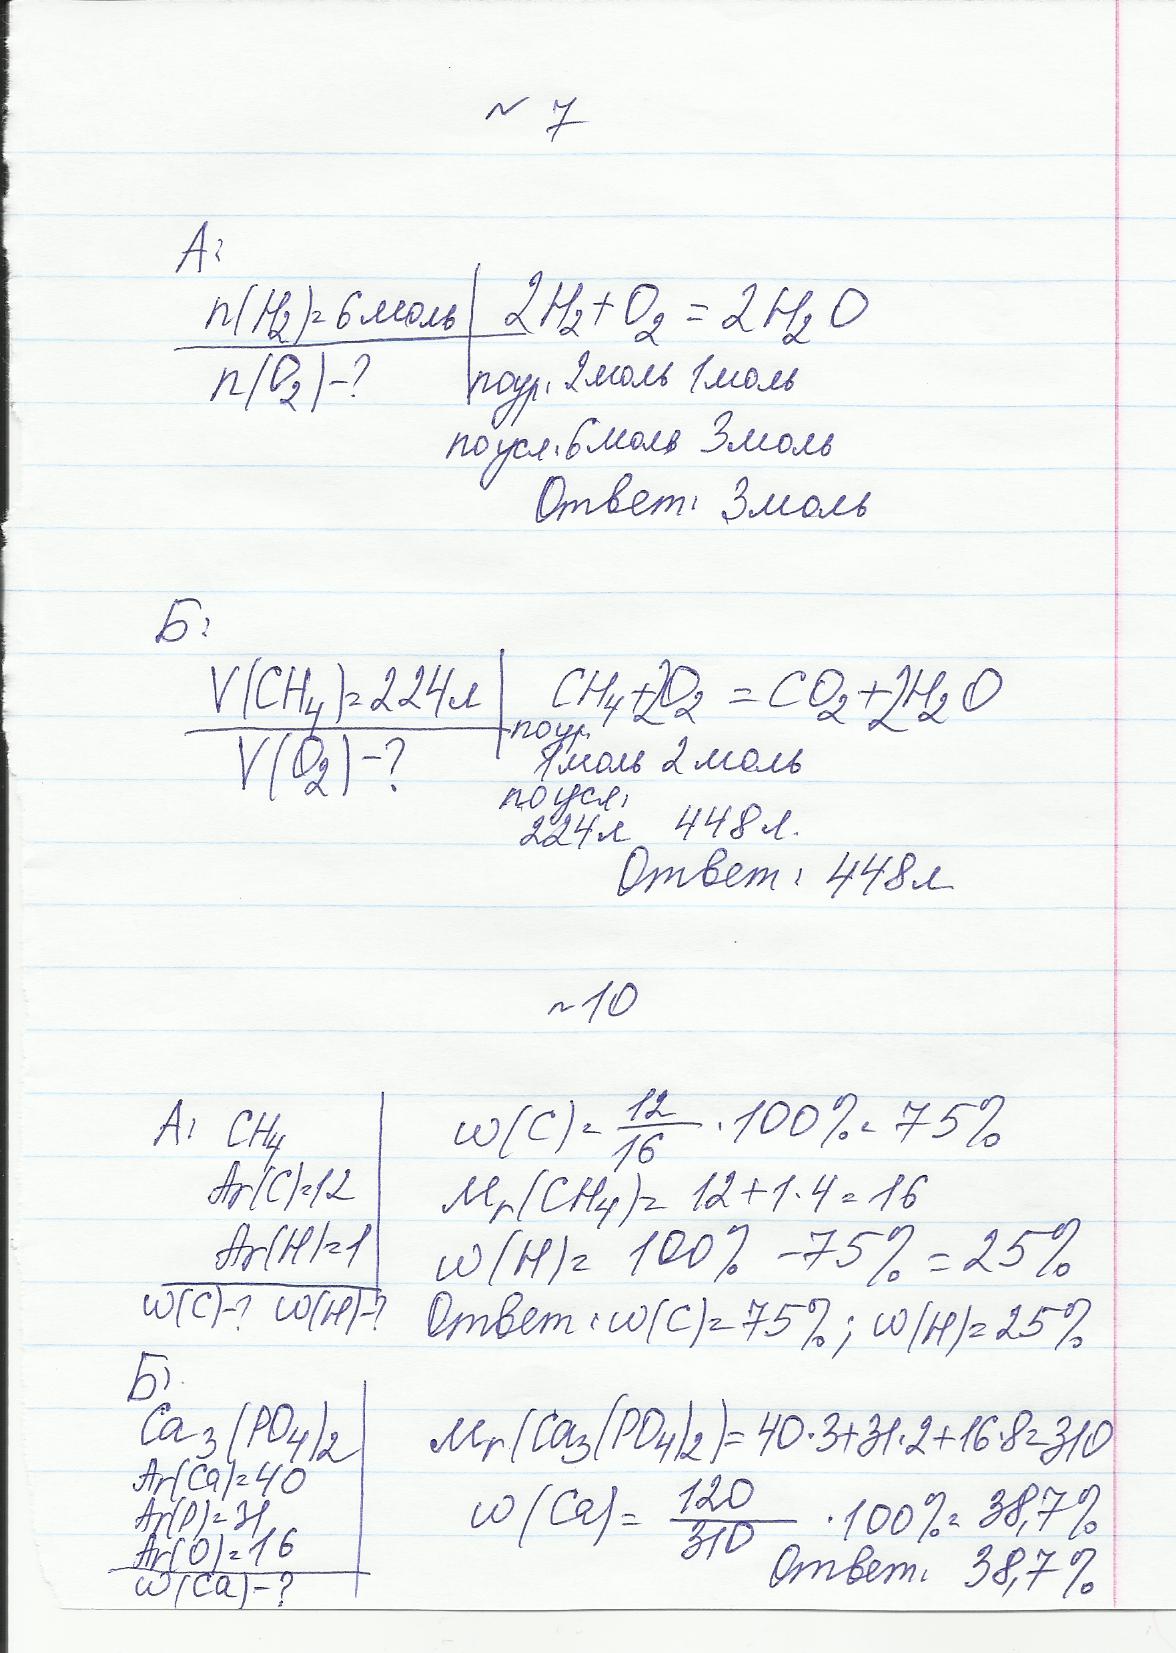 ~ 7
А:
n(H₂)=6моль | 2H₂+O₂ = 2H₂O
n(O₂)-? по ур. 2моль 1моль
по усл: 6моль 3моль
Ответ: 3моль
Б:
V(CH₄)=224л | CH₄+2O₂ = CO₂+2H₂O
V(O₂)-? по ур.
1моль 2моль
по усл:
224л 448л.
Ответ: 448л
~10
А: CH₄ | w(C)= 12/16 · 100% = 75%
Ar(C)=12 Mr(CH₄)= 12+1·4=16
Ar(H)=1 w(H)= 100% -75% = 25%
w(C)-? w(H)-? Ответ: w(C)=75%; w(H)=25%
Б:
Ca₃(PO₄)₂ | Mr(Ca₃(PO₄)₂)=40·3+31·2+16·8=310
Ar(Ca)=40
Ar(P)=31 w(Ca)= 120/310 ·100%= 38,7%
Ar(O)=16
w(Ca)-? Ответ: 38,7%